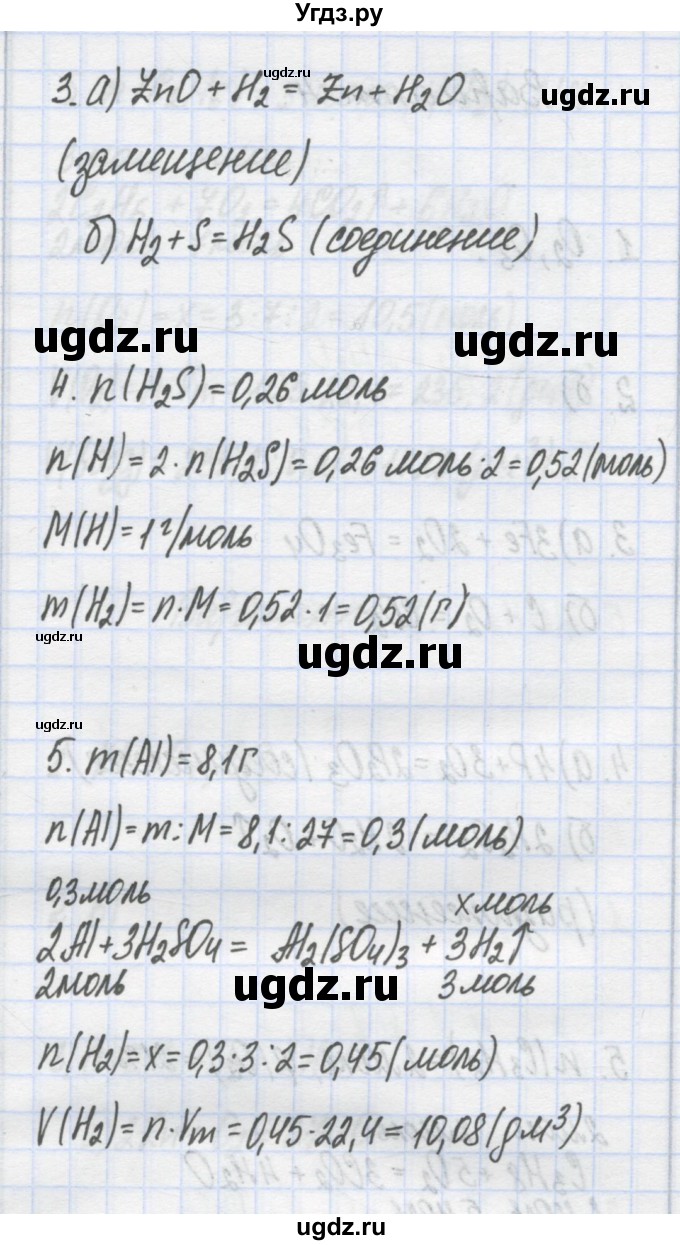 Угдз.ру
ugdz.ru
3. а) ZnO + H₂ = Zn + H₂O
ugdz.ru
(замещение)
б) H₂ + S = H₂S (соединение)
ugdz.ru
ugdz.ru
4. n(H₂S) = 0,26 моль
n(H) = 2 · n(H₂S) = 0,26 моль · 2 = 0,52 (моль)
M(H) = 1 г/моль
m(H₂) = n · M = 0,52 · 1 = 0,52 (г)
ugdz.ru
ugdz.ru
ugdz.ru
5. m(Al) = 8,1 г
n(Al) = m : M = 8,1 : 27 = 0,3 (моль)
0,3 моль x моль
2Al + 3H₂SO₄ = Al₂(SO₄)₃ + 3H₂↑
2 моль 3 моль
ugdz.ru
n(H₂) = x = 0,3 · 3 : 2 = 0,45 (моль)
V(H₂) = n · Vm = 0,45 · 22,4 = 10,08 (дм³)
ugdz.ru